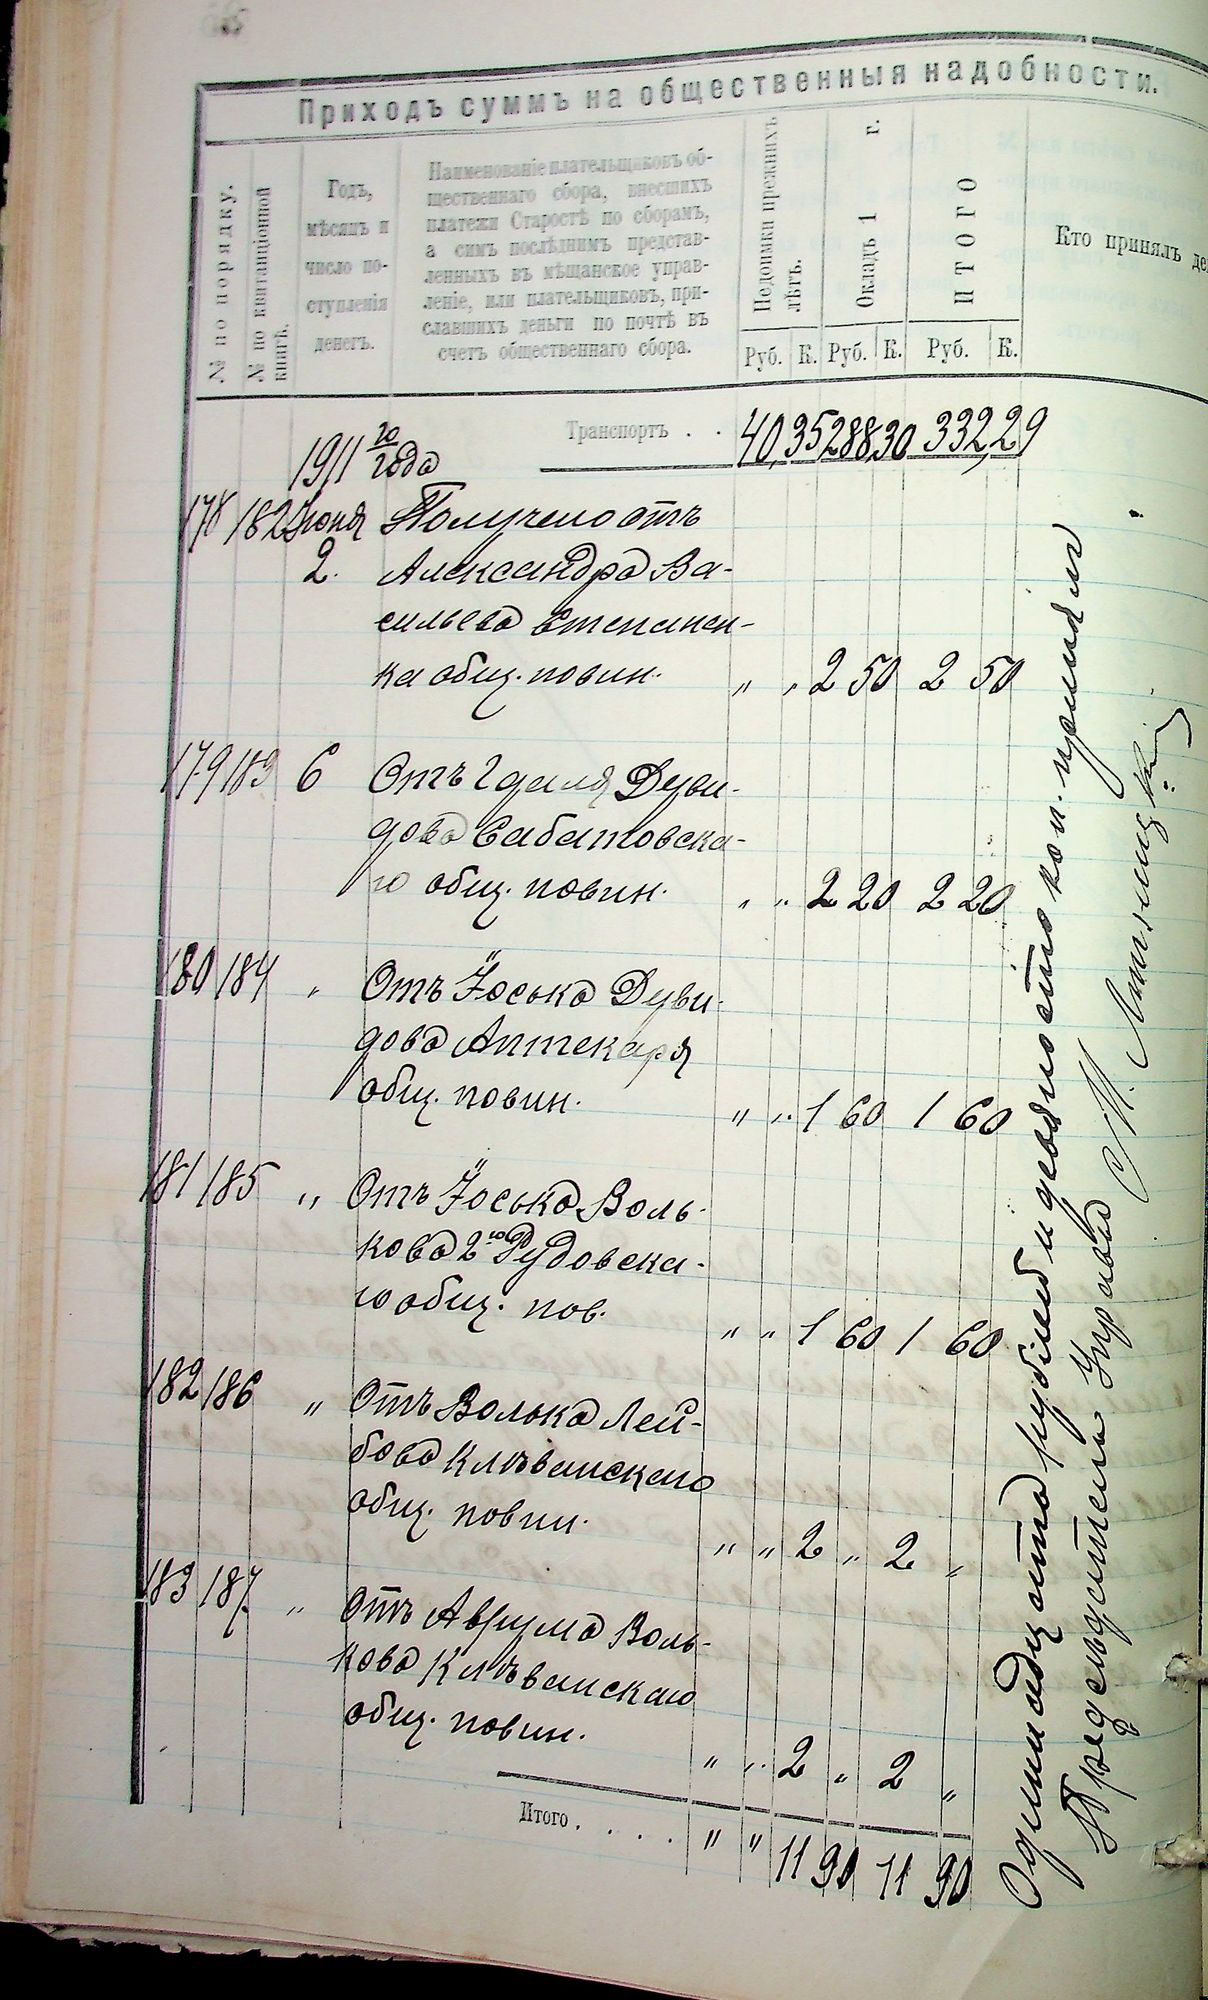 Приходъ суммъ на общественныя надобности.
№ по порядку.
№ по квитанціонной
книгѣ.
Годъ,
мѣсяцъ и
число по-
ступленія
денегъ.
Наименованіе плательщиковъ об-
щественнаго сбора, внесшихъ
платежи Старостѣ по сборамъ,
а симъ послѣднимъ представ-
ленныхъ въ мѣщанское управ-
леніе, или плательщиковъ, при-
славшихъ деньги по почтѣ въ
счетъ общественнаго сбора.
Недоимки прежнихъ
лѣтъ.
Окладъ 1 г.
ИТОГО
Кто принялъ де
Руб. К. Руб. К. Руб. К.
Транспортъ . . 40,35 288,30 332,29
1911 го года
178 182 Іюня Получено отъ
2. Александра Ва-
сильева Степанен-
ка общ. повин. " " 2 50 2 50
179 183 6 Отъ Дуви-
дова Сабатовска-
го общ. повин. " " 2 20 2 20
180 184 " Отъ Іоська Дуви-
дова Аптекаря
общ. повин. " " 1 60 1 60
181 185 " Отъ Іоська Воль-
кова 2го Рудовска-
го общ. пов. " " 1 60 1 60
182 186 " Отъ Волька Лей-
бова Клѣванскаго
общ. повин. " " 2 " 2 "
183 187 " Отъ Аврума Воль-
кова Клѣванскаго
общ. повин. " " 2 " 2 "
Итого . . . . " " 11 90 11 90
Одинадцать рублей и девяносто коп. принялъ
Предсѣдатель Управы